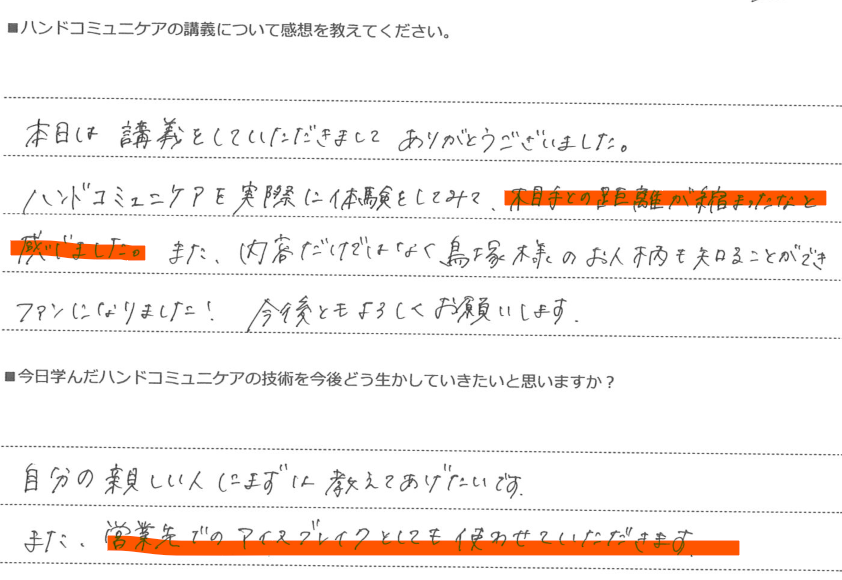 ■ハンドコミュニケアの講義について感想を教えてください。
本日は 講義をしていただきまして ありがとうございました。
ハンドコミュニケアを実際に体験をしてみて、相手との距離が縮まったなと
感じました。また、内容だけではなく鳥塚様のお人柄も知ることができ
ファンになりました! 今後ともよろしくお願いします.
■今日学んだハンドコミュニケアの技術を今後どう生かしていきたいと思いますか？
自分の親しい人にまずは教えてあげたいです.
また、営業先でのアイスブレイクとしても使わせていただきます.